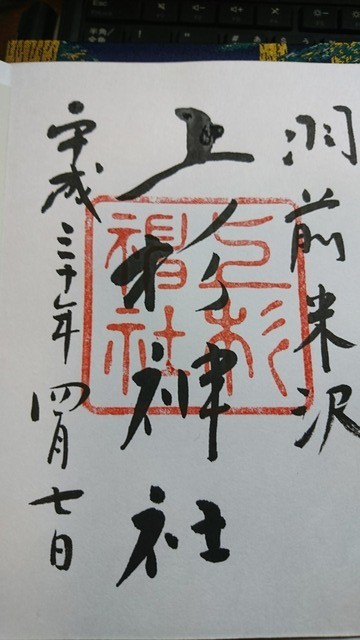 羽前米沢
上杉神社
平成三十年四月七日
上杉神社